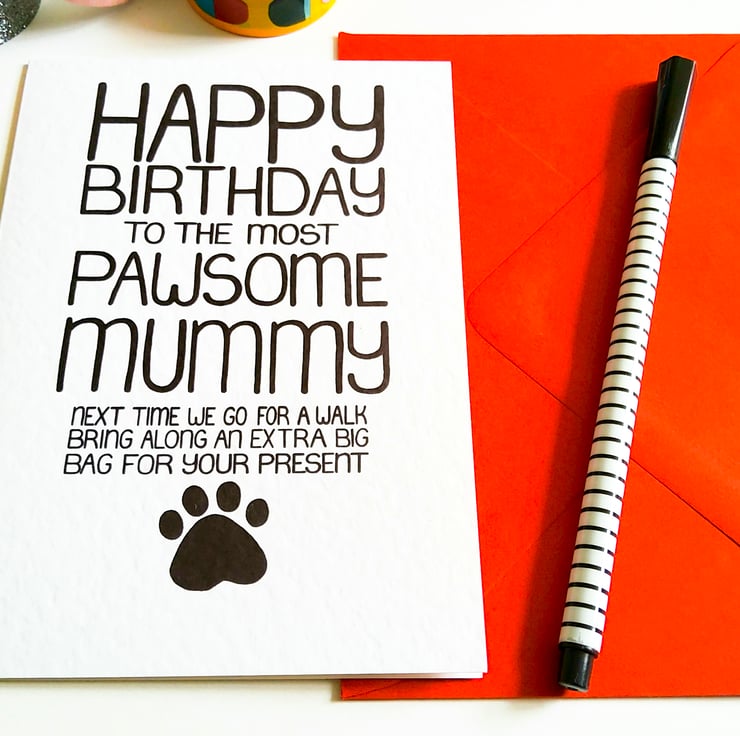 HAPPY
BIRTHDAY
TO THE MOST
PAWSOME
MUMMY
NEXT TIME WE GO FOR A WALK
BRING ALONG AN EXTRA BIG
BAG FOR YOUR PRESENT